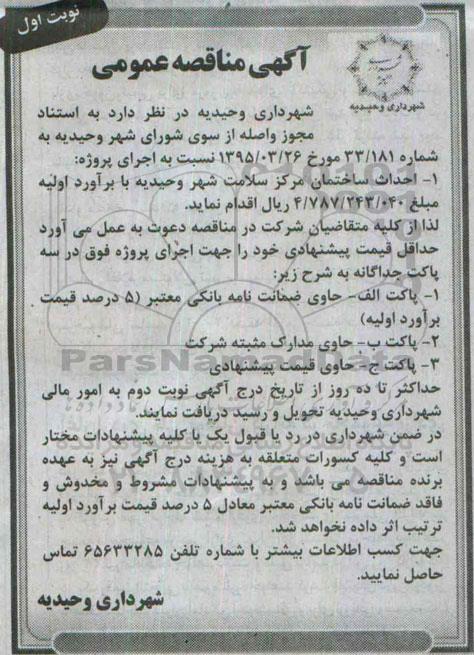 نوبت اول
آگهی مناقصه عمومی
شهرداری وحیدیه
شهرداری وحیدیه در نظر دارد به استناد
مجوز واصله از سوی شورای شهر وحیدیه به
شماره ۳۳/۱۸۱ مورخ ۱۳۹۵/۰۳/۲۶ نسبت به اجرای پروژه:
۱- احداث ساختمان مرکز سلامت شهر وحیدیه با برآورد اولیه
مبلغ ۴/۷۸۷/۲۴۳/۰۴۰ ریال اقدام نماید.
لذا از کلیه متقاضیان شرکت در مناقصه دعوت به عمل می آورد
حداقل قیمت پیشنهادی خود را جهت اجرای پروژه فوق در سه
پاکت جداگانه به شرح زیر:
۱- پاکت الف- حاوی ضمانت نامه بانکی معتبر (۵ درصد قیمت
برآورد اولیه)
۲- پاکت ب- حاوی مدارک مثبته شرکت
۳- پاکت ج- حاوی قیمت پیشنهادی
ParsNamadData
حداکثر تا ده روز از تاریخ درج آگهی نوبت دوم به امور مالی
شهرداری وحیدیه تحویل و رسید دریافت نمایند.
در ضمن شهرداری در رد یا قبول یک یا کلیه پیشنهادات مختار
است و کلیه کسورات متعلقه به هزینه درج آگهی نیز به عهده
برنده مناقصه می باشد و به پیشنهادات مشروط و مخدوش و
فاقد ضمانت نامه بانکی معتبر معادل ۵ درصد قیمت برآورد اولیه
ترتیب اثر داده نخواهد شد.
جهت کسب اطلاعات بیشتر با شماره تلفن ۶۵۶۳۳۲۸۵ تماس
حاصل نمایید.
شهرداری وحیدیه